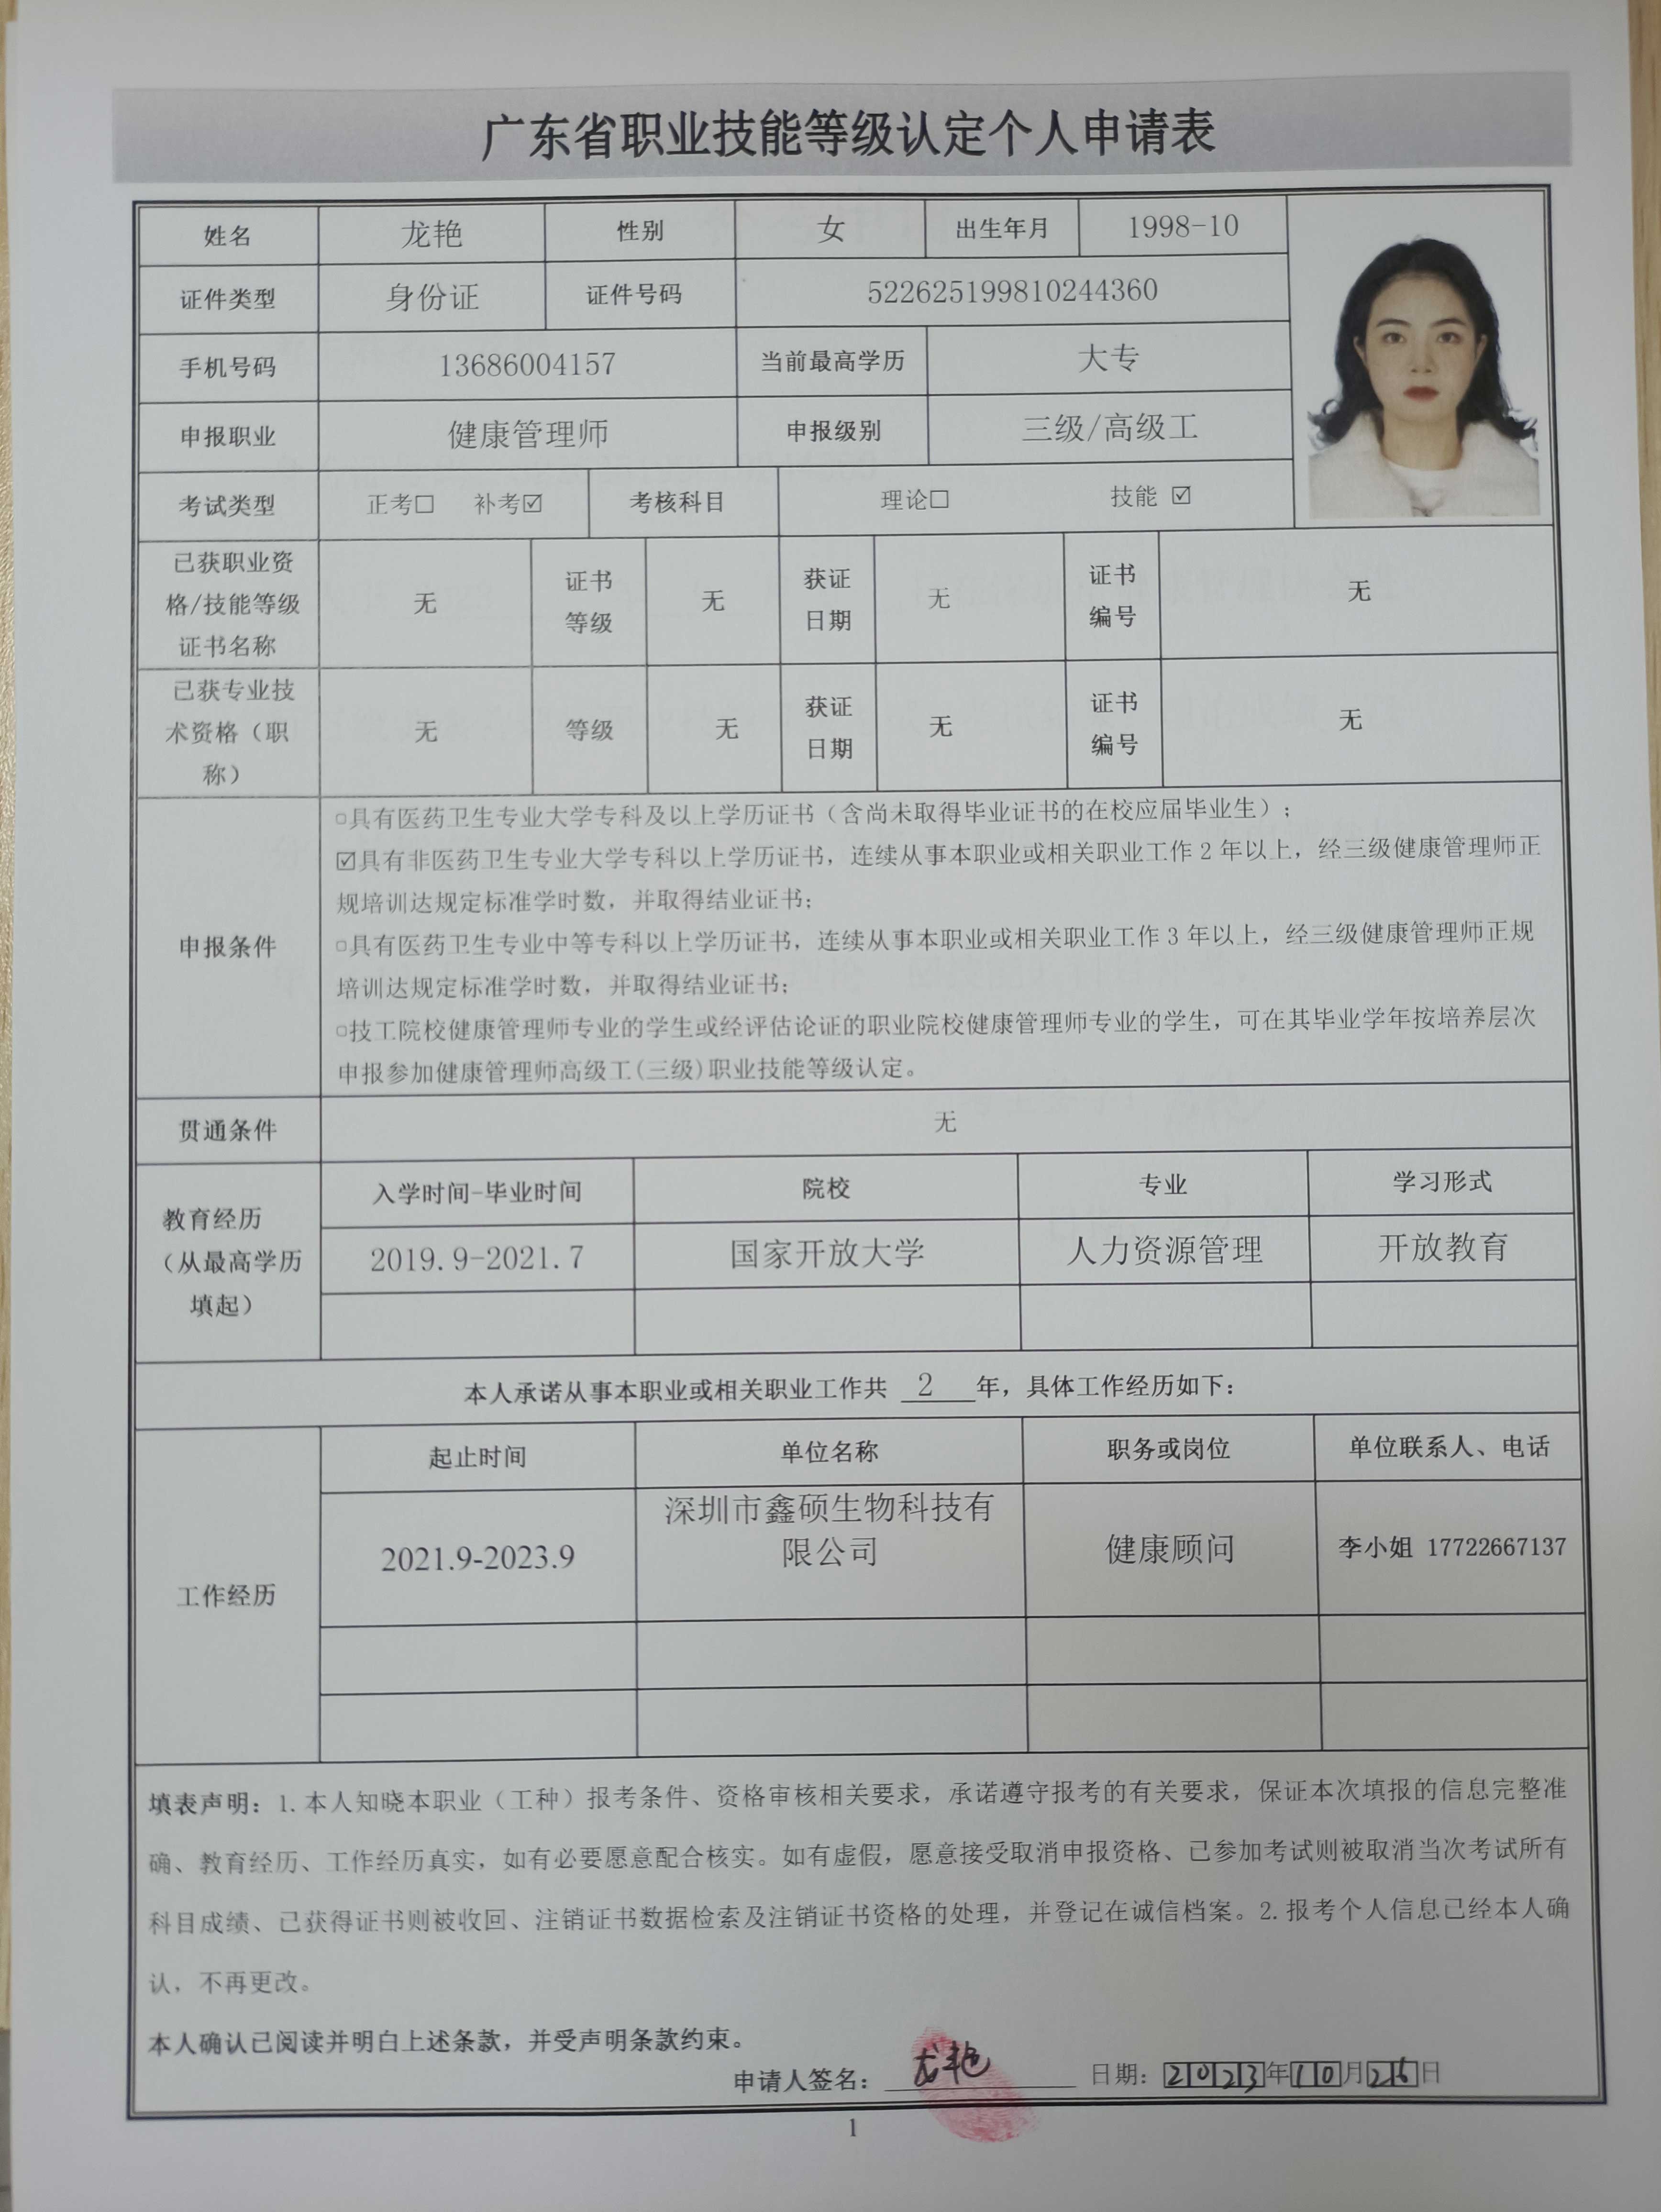 广东省职业技能等级认定个人申请表
姓名 龙艳 性别 女 出生年月 1998-10
证件类型 身份证 证件号码 522625199810244360
手机号码 13686004157 当前最高学历 大专
申报职业 健康管理师 申报级别 三级/高级工
考试类型 正考☐ 补考☑ 考核科目 理论☐ 技能 ☑
已获职业资
格/技能等级
证书名称
无
证书
等级
无
获证
日期
无
证书
编号
无
已获专业技
术资格（职
称）
无
等级
无
获证
日期
无
证书
编号
无
申报条件
□具有医药卫生专业大学专科及以上学历证书（含尚未取得毕业证书的在校应届毕业生）；
☑具有非医药卫生专业大学专科以上学历证书，连续从事本职业或相关职业工作2年以上，经三级健康管理师正
规培训达规定标准学时数，并取得结业证书；
□具有医药卫生专业中等专科以上学历证书，连续从事本职业或相关职业工作3年以上，经三级健康管理师正规
培训达规定标准学时数，并取得结业证书；
□技工院校健康管理师专业的学生或经评估论证的职业院校健康管理师专业的学生，可在其毕业学年按培养层次
申报参加健康管理师高级工(三级)职业技能等级认定。
贯通条件 无
教育经历
（从最高学历
填起）
入学时间-毕业时间 院校 专业 学习形式
2019.9-2021.7 国家开放大学 人力资源管理 开放教育
本人承诺从事本职业或相关职业工作共 2 年，具体工作经历如下：
工作经历
起止时间 单位名称 职务或岗位 单位联系人、电话
2021.9-2023.9
深圳市鑫硕生物科技有
限公司
健康顾问
李小姐 17722667137
填表声明：1.本人知晓本职业（工种）报考条件、资格审核相关要求，承诺遵守报考的有关要求，保证本次填报的信息完整准
确、教育经历、工作经历真实，如有必要愿意配合核实。如有虚假，愿意接受取消申报资格、已参加考试则被取消当次考试所有
科目成绩、已获得证书则被收回、注销证书数据检索及注销证书资格的处理，并登记在诚信档案。2.报考个人信息已经本人确
认，不再更改。
本人确认已阅读并明白上述条款，并受声明条款约束。
申请人签名：龙艳 日期：2023年10月26日
1